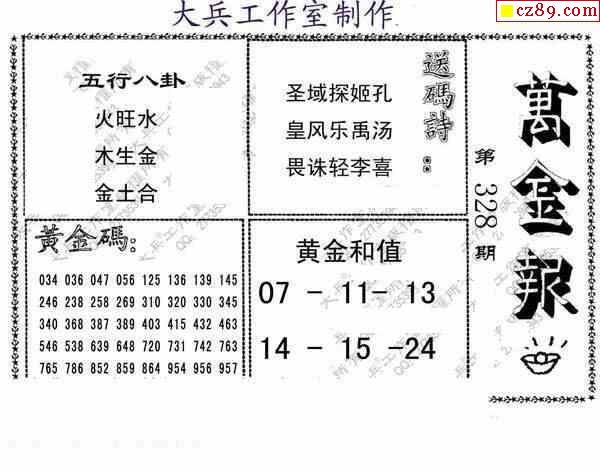 大兵工作室制作
cz89.com
五行八卦
火旺水
木生金
金土合
送碼詩：
圣域探姬孔
皇风乐禹汤
畏诛轻李喜
萬金报
第328期
黃金碼：
034 036 047 056 125 136 139 145
246 238 258 269 310 320 330 345
340 368 387 389 403 415 432 463
546 538 639 648 720 731 742 763
765 786 852 859 864 954 956 957
黄金和值
07 - 11- 13
14 - 15 -24